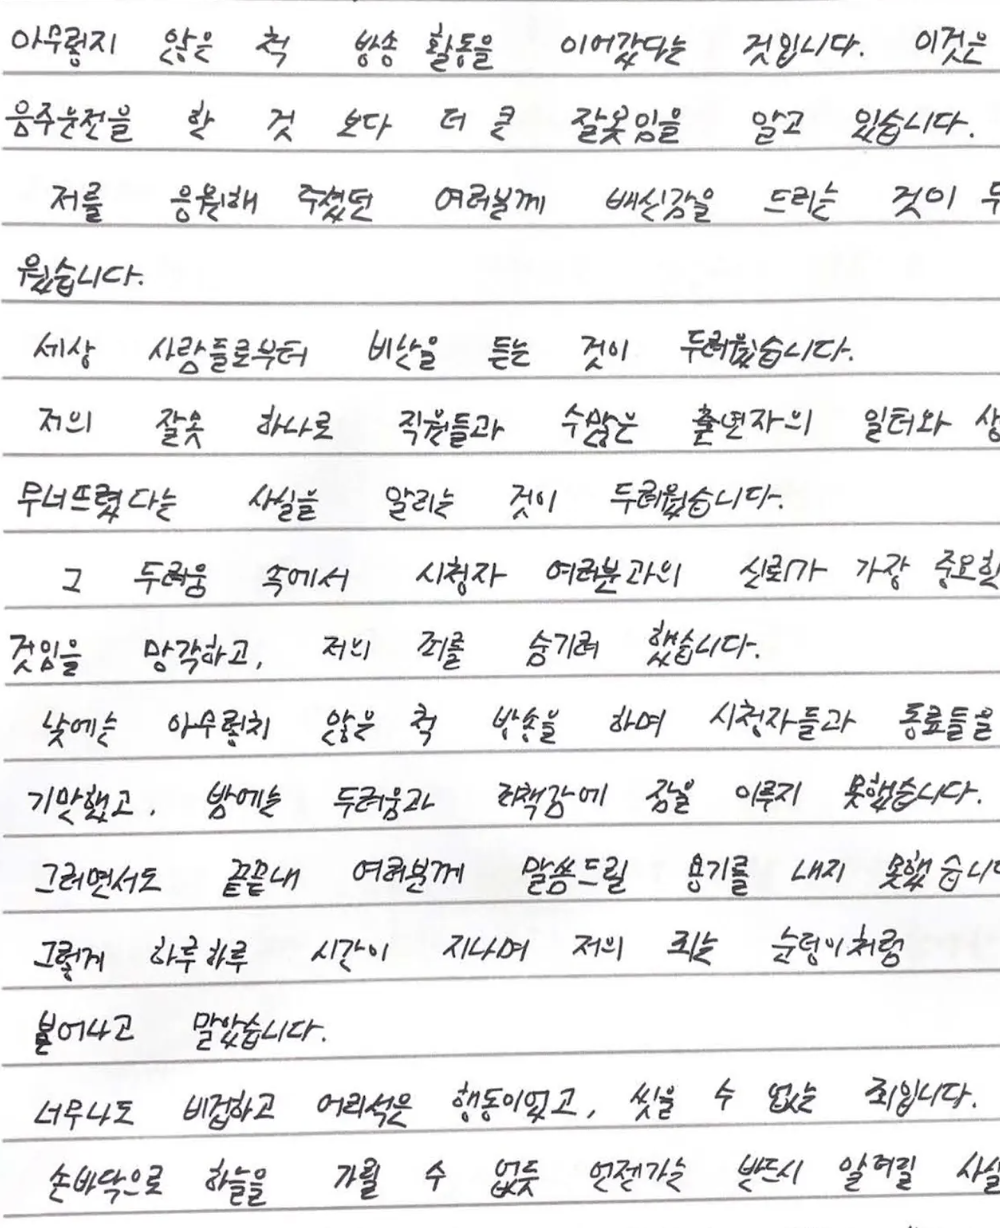 아무렇지 않은 척 방송 활동을 이어갔다는 것입니다. 이것은
음주운전을 한 것 보다 더 큰 잘못임을 알고 있습니다.
저를 응원해 주셨던 여러분께 배신감을 드리는 것이 두
웠습니다.
세상 사람들로부터 비난을 듣는 것이 두려웠습니다.
저의 잘못 하나로 직원들과 수많은 출연자의 일터와 생
무너뜨렸다는 사실을 알리는 것이 두려웠습니다.
그 두려움 속에서 시청자 여러분과의 신뢰가 가장 중요한
것임을 망각하고, 저의 죄를 숨기려 했습니다.
낮에는 아무렇치 않은 척 방송을 하며 시청자들과 동료들을
기만했고, 밤에는 두려움과 죄책감에 잠을 이루지 못했습니다.
그러면서도 끝끝내 여러분께 말씀드릴 용기를 내지 못했습니다
그렇게 하루하루 시간이 지나며 저의 죄는 눈덩이처럼
불어나고 말았습니다.
너무나도 비겁하고 어리석은 행동이었고, 씻을 수 없는 죄입니다.
손바닥으로 하늘을 가릴 수 없듯 언젠가는 반드시 알려질 사실